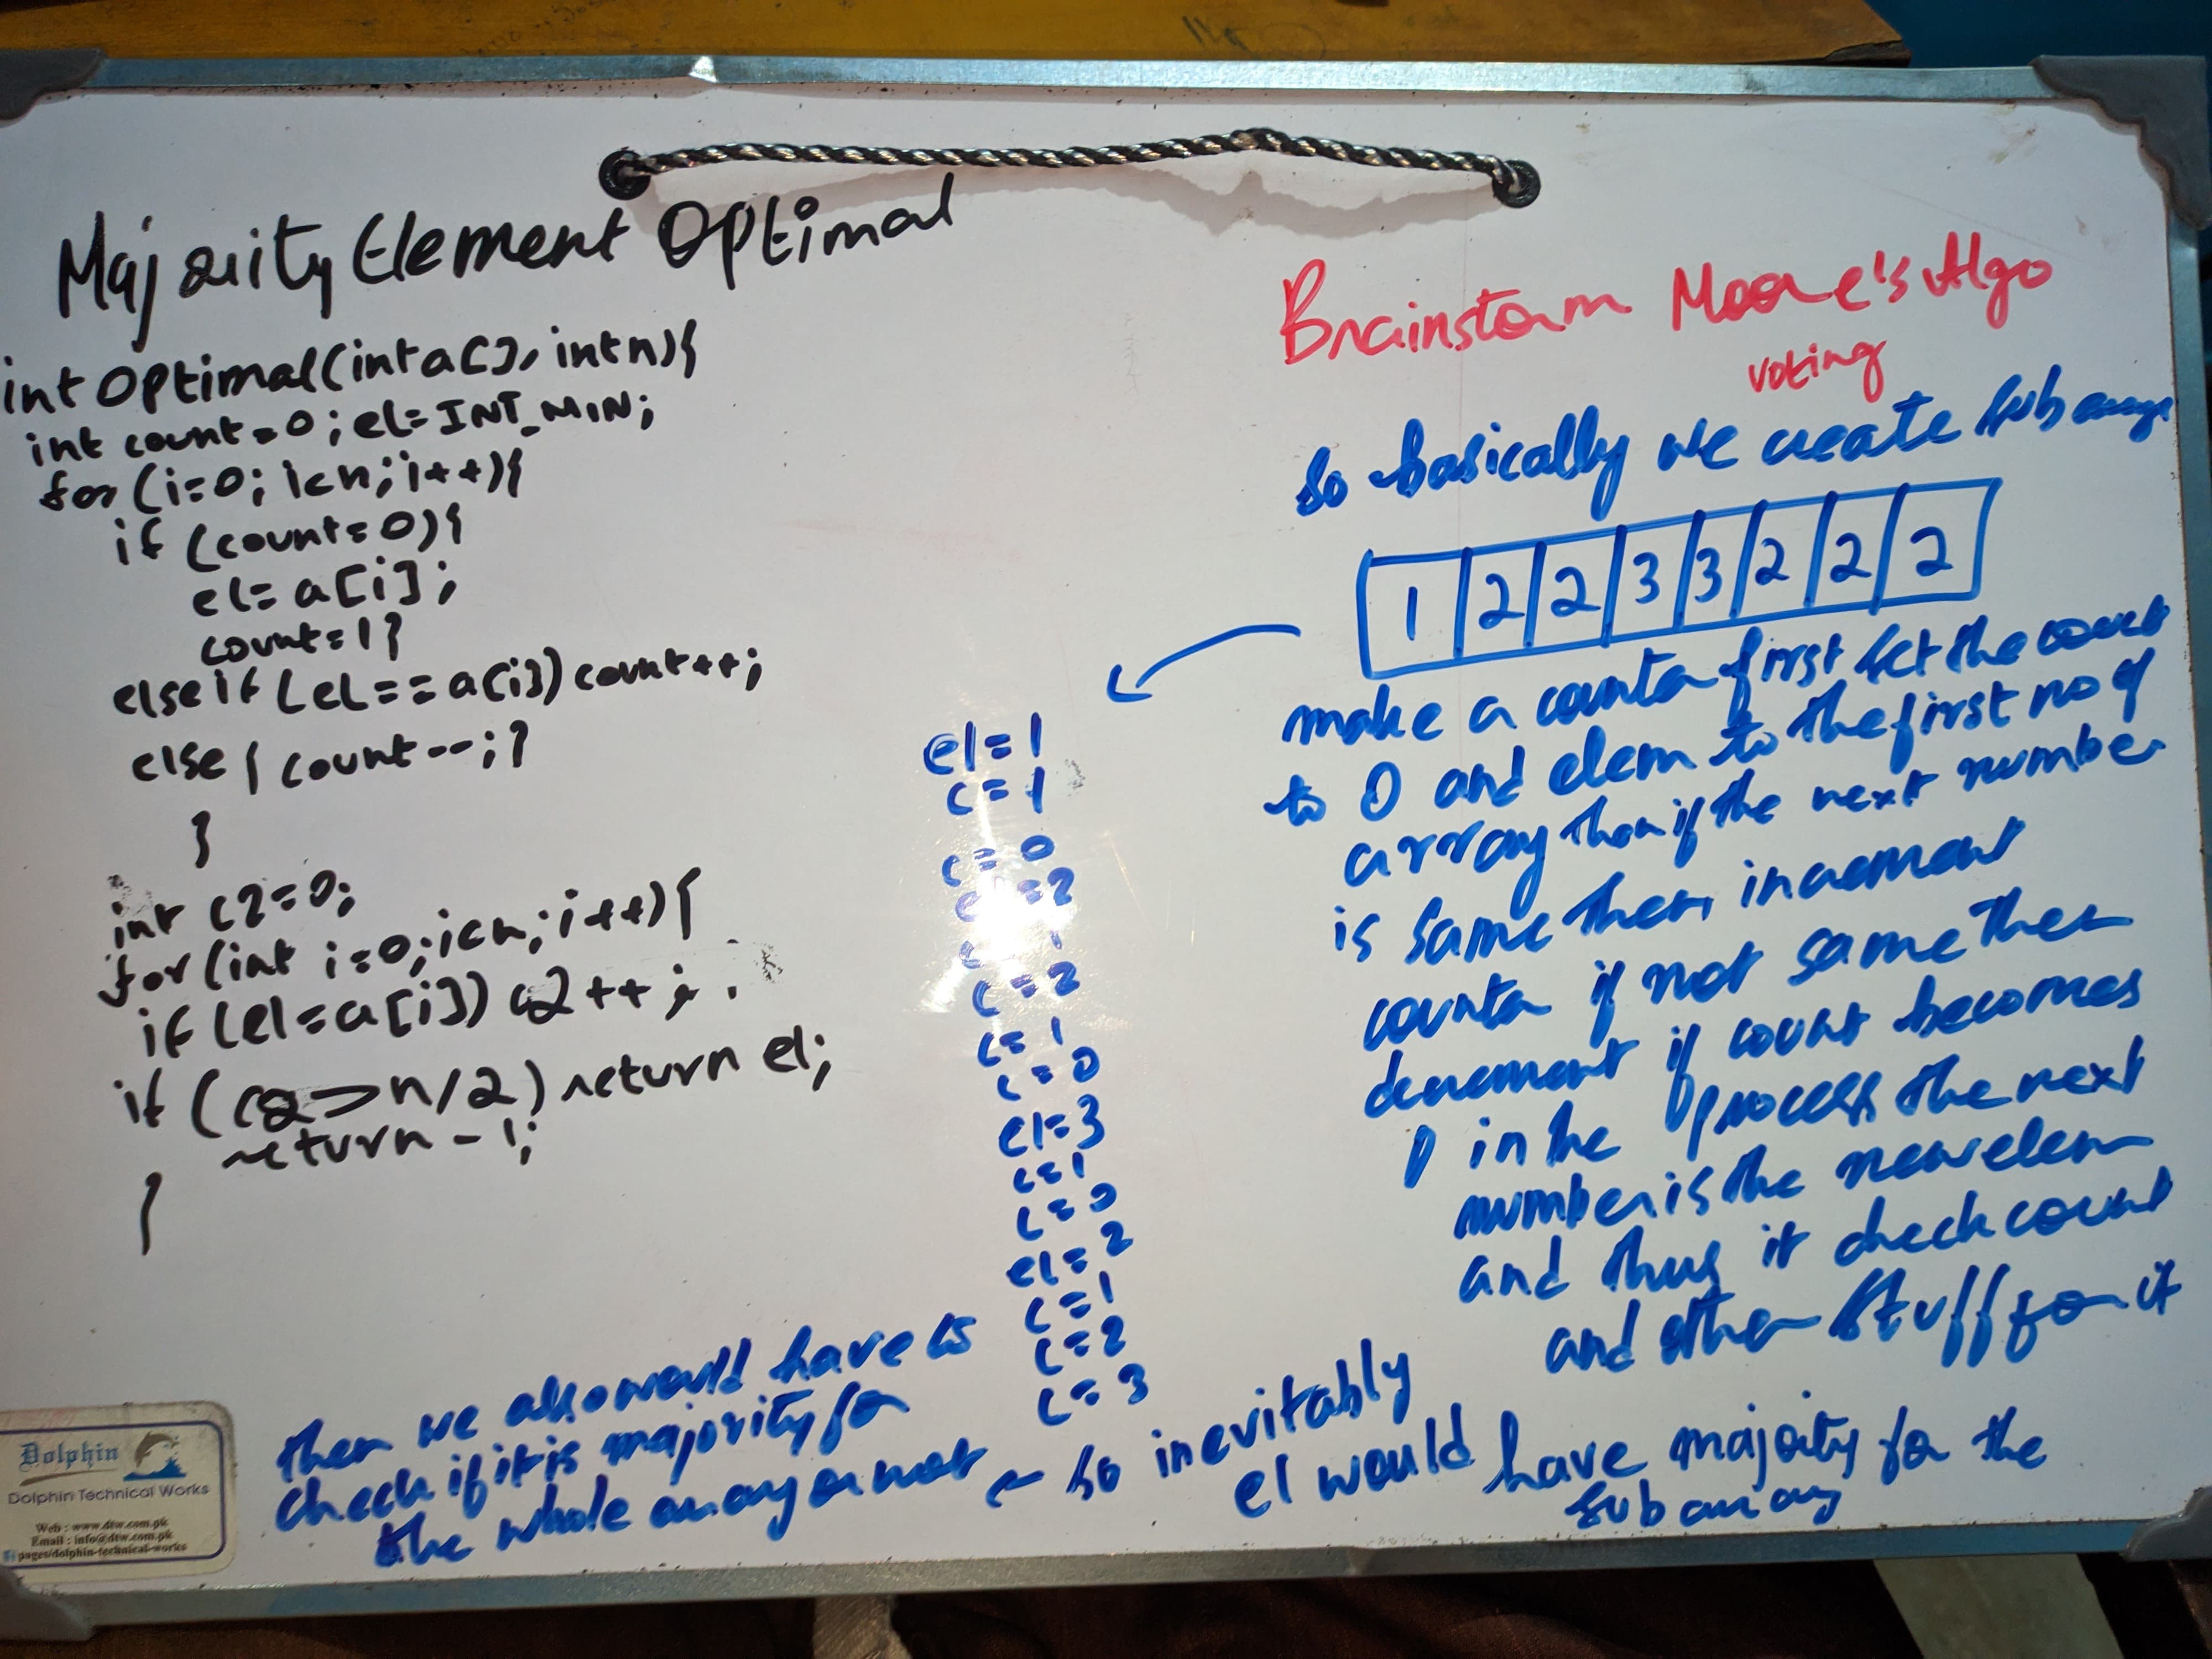 Majority Element Optimal
int Optimal(int a[], int n){
int count=0; el=INT_MIN;
for (i=0; i<n; i++){
if (count=0){
el=a[i];
count=1}
else if (el==a[i]) count++;
else { count--;}
}
int c2=0;
for(int i=0;i<n;i++){
if (el=a[i]) c2++;
if (c2>n/2) return el;
return -1;
}
Brainstorm Moore's Algo
voting
So basically we create sub array
1 2 2 3 3 2 2 2
make a counter first set the count
to 0 and elem to the first no of
array then if the next number
is same then increment
counter if not same then
decrement if count becomes
0 in the process the next
number is the new elem
and thus it check count
and other stuff for it
el=1
c=1
c=0
el=2
c=1
c=2
c=1
c=0
el=3
c=1
c=0
el=2
c=1
c=2
c=3
← so inevitably
el would have majority for the
sub array
then we also would have to
check if it is majority for
the whole array or not
Dolphin
Dolphin Technical Works
Web : www.dtw.com.pk
Email : info@dtw.com.pk
pages/dolphin-technical-works